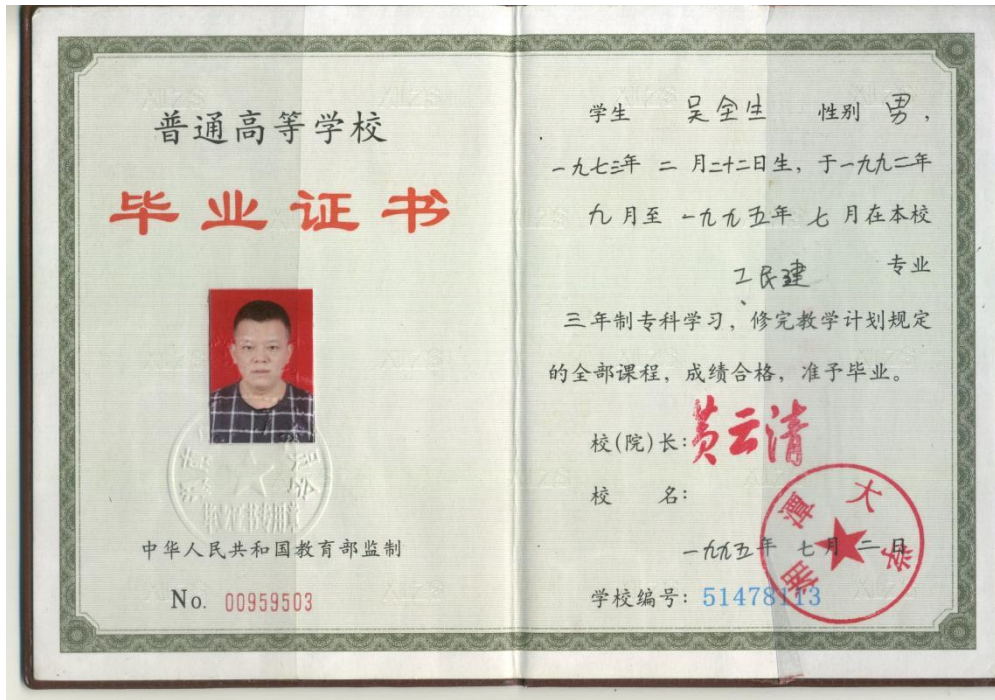 普通高等学校
毕业证书
中华人民共和国教育部监制
No. 00959503
学生 吴全生 性别 男,
一九七三年 二 月二十二日生, 于一九九二年
九 月至 一九九五年 七 月在本校
工民建 专业
三年制专科学习, 修完教学计划规定
的全部课程, 成绩合格, 准予毕业。
校(院)长: 黄云清
校 名:
湘潭大学
一九九五年 七 月 二 日
学校编号: 51478113